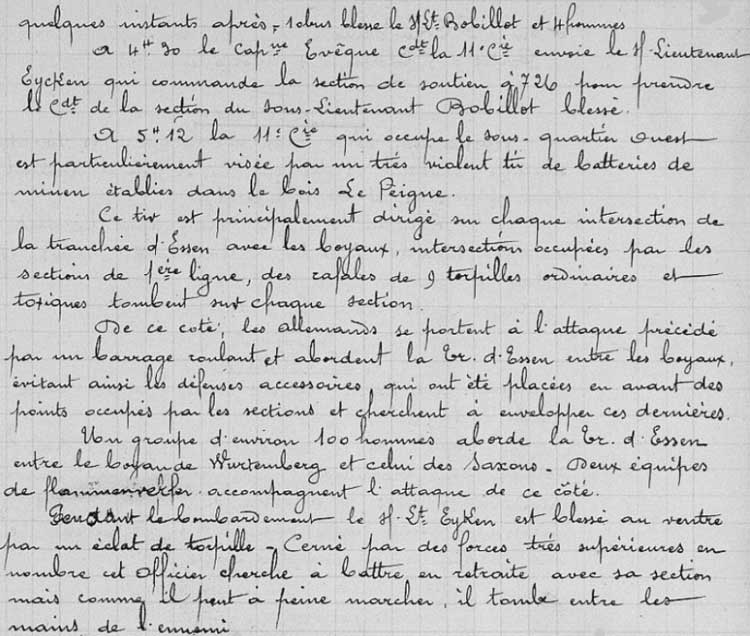 quelques instants après, 1 obus blesse le S/Lt Bobillot et 4 hommes
A 4H 30 le Capne Evêque Cdt la 11e Cie envoie le S/ Lieutenant
Eycken qui commande la section de soutien à 726 pour prendre
le Cdt de la section du Sous-Lieutenant Bobillot blessé.
A 5H 12 la 11e Cie qui occupe le sous-quartier ouest
est particulièrement visée par un très violent tir de batteries de
minen établies dans le bois Le Peigne.
Ce tir est principalement dirigé sur chaque intersection de
la tranchée d'Essen avec les boyaux, intersections occupées par les
sections de 1ère ligne, des rafales de 9 torpilles ordinaires et
toxiques tombent sur chaque section.
De ce coté, les allemands se portent à l'attaque précédé
par un barrage roulant et abordent la Tr. d'Essen entre les boyaux,
évitant ainsi les défenses accessoires, qui ont été placées en avant des
points occupés par les sections et cherchent à envelopper ces dernières.
Un groupe d'environ 100 hommes aborde la Tr. d'Essen
entre le boyau de Wurtemberg et celui des Saxons - Deux équipes
de flammenwerfer accompagnent l'attaque de ce côté.
Pendant le bombardement le S/ Lt Eycken est blessé au ventre
par un éclat de torpille - Cerné par des forces très supérieures en
nombre cet Officier cherche à battre en retraite avec sa section
mais comme il peut à peine marcher, il tombe entre les
mains de l'ennemi